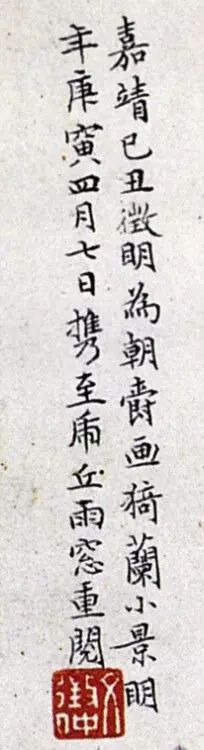 嘉靖己丑徵明為朝爵画猗蘭小景明
年庚寅四月七日携至虎丘雨窓重閱
文徵仲